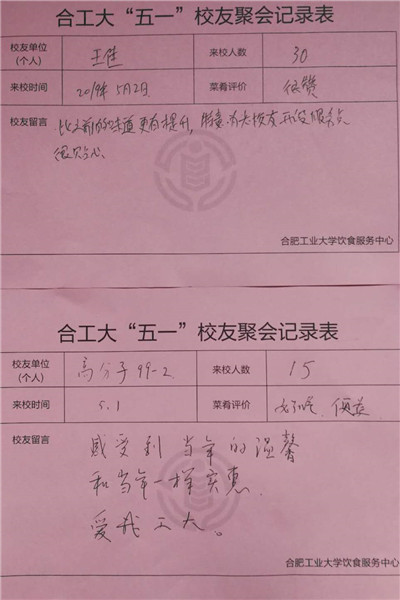 合工大“五一”校友聚会记录表
校友单位(个人) 王佳 来校人数 30
来校时间 2019年5月2日 菜肴评价 很赞
校友留言 比之前的味道更有提升，特意为老校友开设服务点
很贴心。
合肥工业大学饮食服务中心
合工大“五一”校友聚会记录表
校友单位(个人) 高分子99-2 来校人数 15
来校时间 5.1 菜肴评价 好吃、便宜
校友留言 感受到当年的温馨
和当年一样实惠
爱我工大。
合肥工业大学饮食服务中心